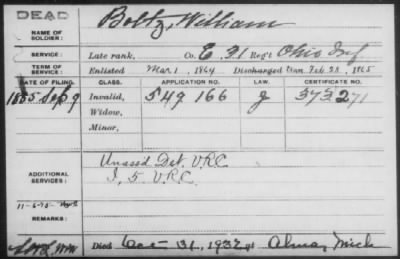 DEAD
Boltz, William
NAME OF SOLDIER:
SERVICE: Late rank, Co. E. 31 Reg't Ohio Inf
TERM OF SERVICE: Enlisted Mar 1, 1864 Discharged Feb 28, 1865
DATE OF FILING. CLASS. APPLICATION NO. LAW. CERTIFICATE NO.
1885 Sep 9 Invalid, 549 166 g 373271
Widow,
Minor,
ADDITIONAL SERVICES: Unassd Det. V.R.C.
I, 5 V.R.C.
11-6-75-
REMARKS:
Died 31, 1932 at Alma, Mich